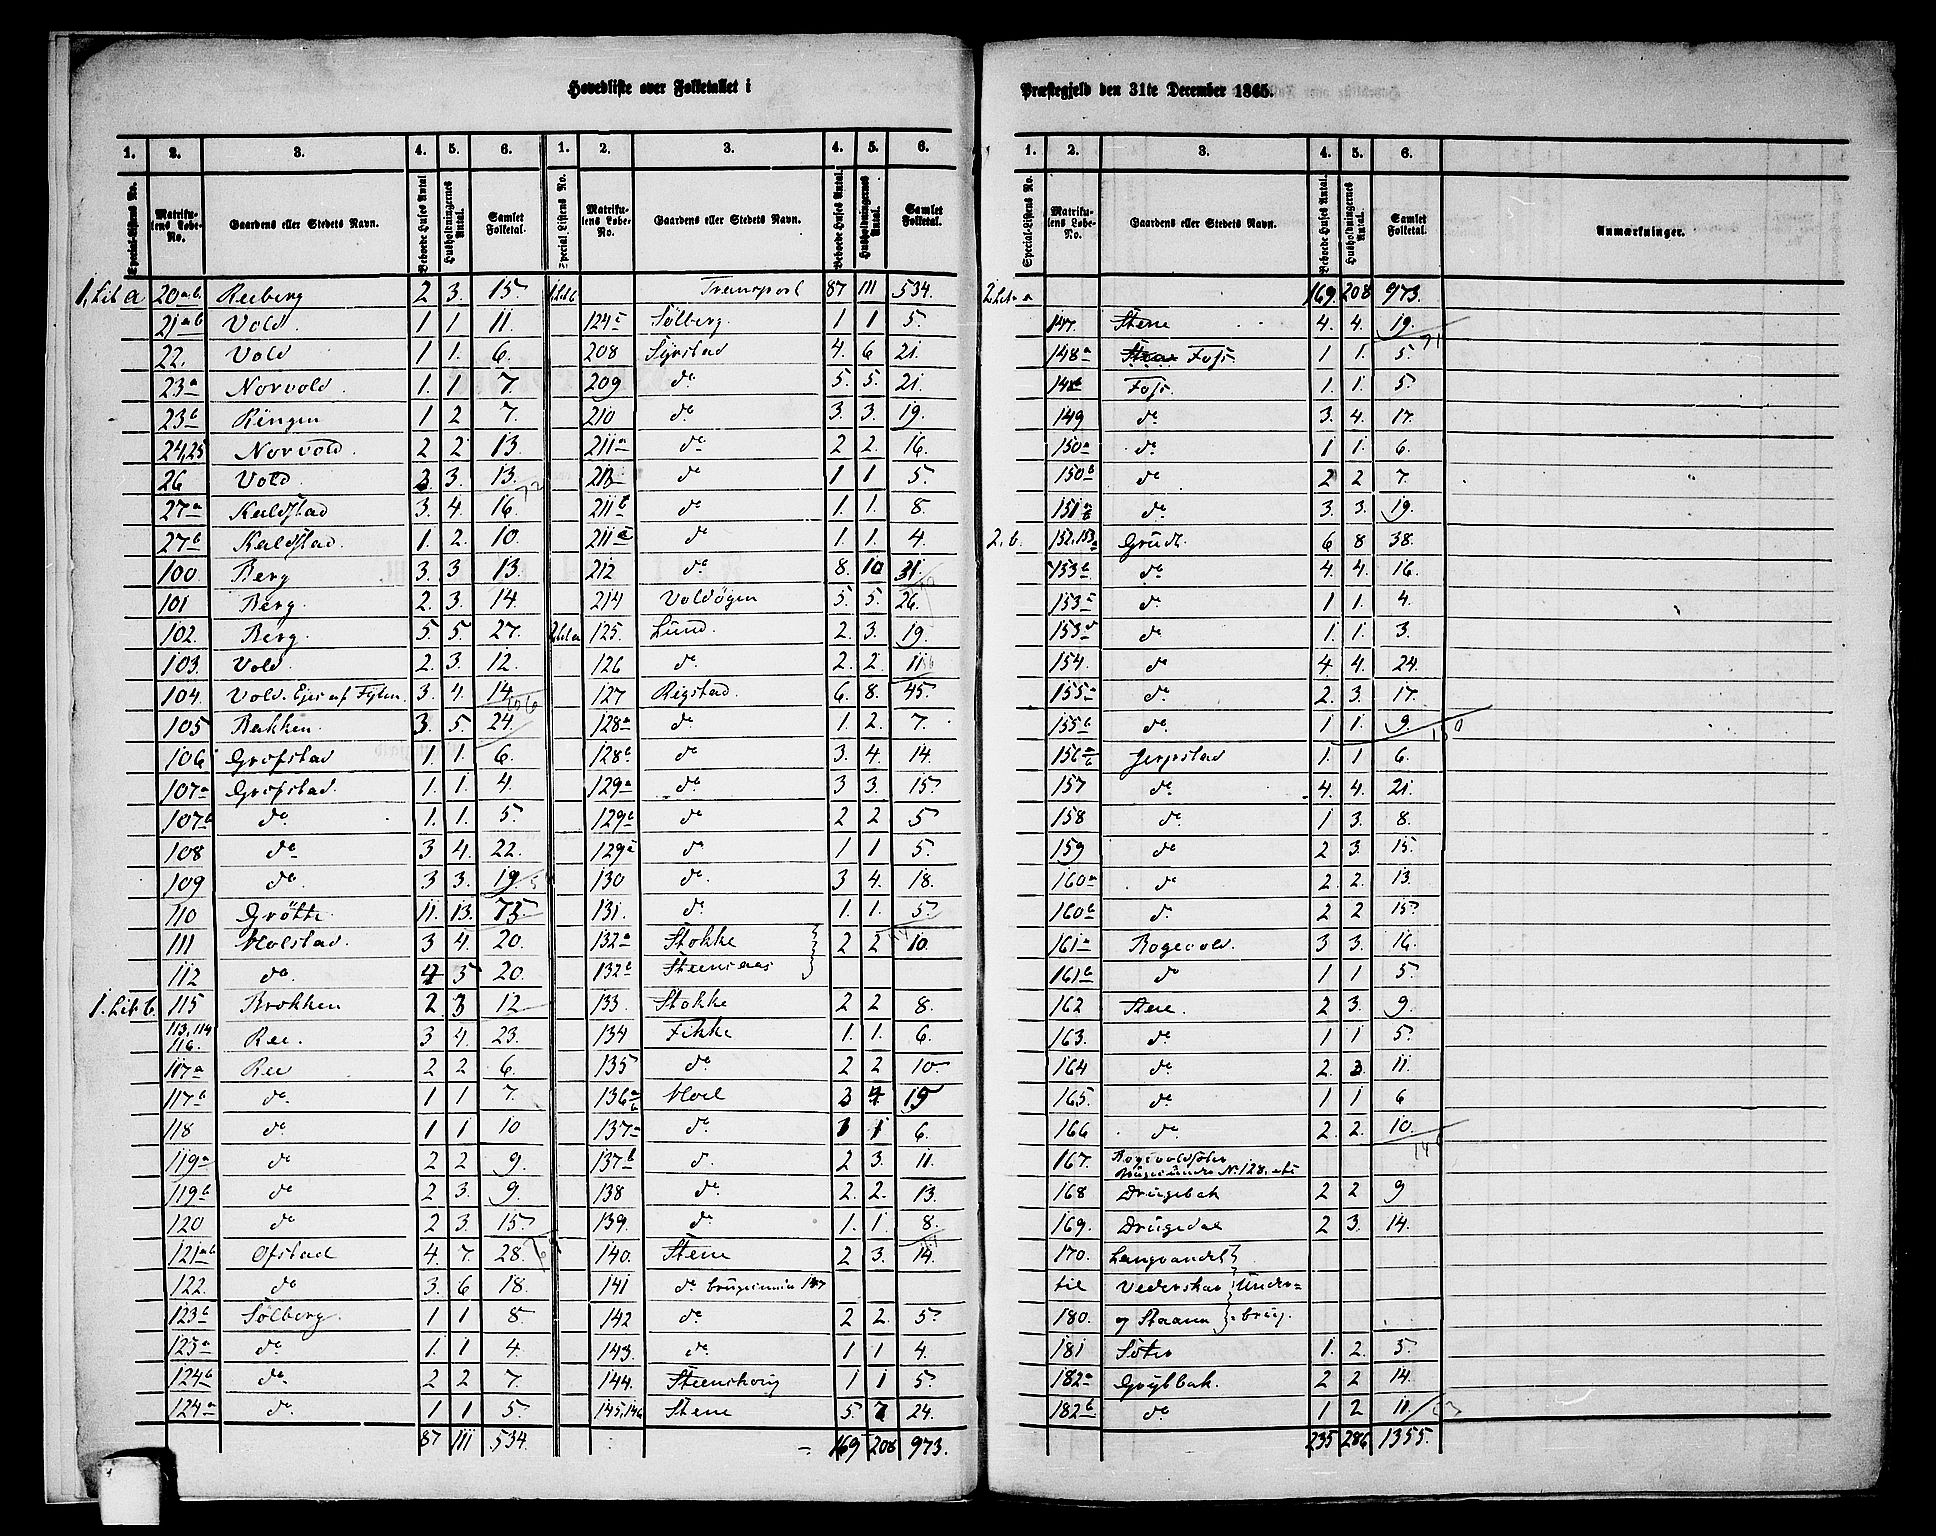 Hovedliste over Folketallet i
Præstegjeld den 31te December 1865.
1. 2. 3. 4. 5. 6.
Special-Listens No. Matrikulens Løbe-No. Gaardens eller Stedets Navn. Beboede Huses Antal Husholdningernes Antal. Samlet Folketal.
1, Lit a 20ab. Reeberg 2 3. 15.
21ab Vold 1 1 11.
22. Vold 1 1. 6.
23a Norvold 1. 1 7.
23b Ringen 1 2 7.
24,25 Norvold 2 2 13.
26 Vold 3 3. 13.
27a Kaldstad 3. 4. 16.
27b Kaldstad. 1. 2. 10.
100. Berg 3. 3 13.
101 Berg. 2. 3. 14.
102. Berg. 5. 5. 27.
103. Vold. 2. 3. 12.
104. Vold. Eies af Fylen 3. 4. 14.
105 Bakken 3. 5. 24.
106 Grofstad 1. 1. 6.
107a Grofstad. 1. 1. 4.
107b do. 1. 1. 5.
108 do 3 4. 22.
109 do. 3 3. 19
110 Grøtte 11. 13. 75
111 Molstad. 3 4. 20.
112 do. 4 5 20.
1. Lit b. 115 Brokken 2 3 12
113,114 116. Ree. 3 4. 23.
117a Ree 2 2 6.
117b do. 1 1 7.
118 do. 1 1 10
119a do 2 2 9.
119b do 2 3. 9.
120 do 2 3. 15
121ab Ofstad 4. 7. 28.
122. do 3. 6 18.
123b Sølberg. 1 1 8.
123a do 1. 1 4.
124b do. 2 2 7.
124a do. 1 1 5.
87 111 534.
1. 2. 3. 4. 5. 6.
Special-Listens No. Matrikulens Løbe-No. Gaardens eller Stedets Navn. Beboede Huses Antal. Husholdningernes Antal. Samlet Folketal.
1 Lit b Transport 87 111 534.
124c Sølberg. 1 1 5.
208 Syrstad 4. 6 21.
209 do 5. 5. 21.
210 do 3. 3. 19.
211a do 2 2. 16.
213 do 1 1 5.
211b do 1. 1. 8.
211c do 1. 1. 4.
212 do 8. 10 31.
214 Voldøgen 5. 5. 26.
2 Lit a 125. Lund. 2. 3. 19.
126 do 2. 2. 11
127 Rigstad. 6. 8. 45.
128a do 1. 2. 7.
128b do 3. 4. 14.
129a do. 3 3. 15.
129b do 2 2 5
129c do 1 1 5.
130 do. 3 4. 18.
131. do. 1. 1. 5.
132a Stokke 2 2 10.
132b Steensaas
133 Stokke 2 2 8.
134 Fikke 1. 1. 6.
135 do. 2 2 10
136ab Moel 3 4. 19
137a do. 1 1 6.
137b d. 2 3. 11.
138 do. 2. 2. 13.
139. do. 1. 1. 8.
140. Stene 2 3. 14.
141 do
142 do 2 2. 5.
143. do. 1 1 4.
144. 1 1 5.
145,146 Stene 5. 7. 24.
169 208 973.
1. 2. 3. 4. 5. 6.
Special-Listens No. Matrikulens Løbe-No. Gaardens eller Stedets Navn. Beboede Huses Antal. Husholdningernes Antal. Samlet Folketal. Anmærkninger.
2 Lit. a 169 208 973.
147. Stene 4. 4. 19.
148a Foss. 1 1. 5.
148b Foss. 1 1. 5.
149 do 3. 4. 17.
150a do. 1 1. 6.
150b do 2 2 7.
151ab do. 3. 3. 19.
2. b. 152,153a Grudt. 6 8 38.
153b do. 4. 4. 16.
153c do. 1 1. 4.
153d do. 1. 1. 3.
154. do 4. 4. 24.
155a do. 2. 3. 17.
155b do. 1 1. 9.
156ab Jerpstad 1. 1 6.
157 do. 4. 4. 21.
158 do. 1 3. 8.
159 do 2 3. 15.
160a do 2. 2. 13.
160b d. 2 2 15.
161a Rogevold. 3 3. 16.
161b do 1 1 5.
162 Stene. 2 3. 9.
163. do. 1 1 5.
164 do 2. 3. 11.
165. do. 1 1 6
166 do. 2. 2. 10.
167.
168 Drugebak 2 2 9
169. Drugedal 2 3. 14.
170. Langvandet
til Under-
180. brug.
181 1. 2. 5.
182a 2 2 14.
182b do. 1 2 11.
235 286 1355.